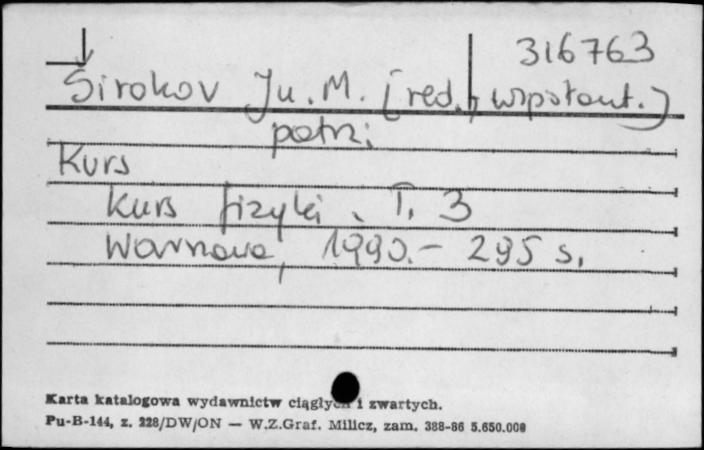 316763
Širokov Ju. M. [red., współaut.]
patrz:
Kurs
Kurs fizyki. T. 3
Warszawa, 1990. - 295 s.
Karta katalogowa wydawnictw ciągłych i zwartych.
Pu-B-144, z. 228/DW/ON — W.Z.Graf. Milicz, zam. 388-86 5.650.000